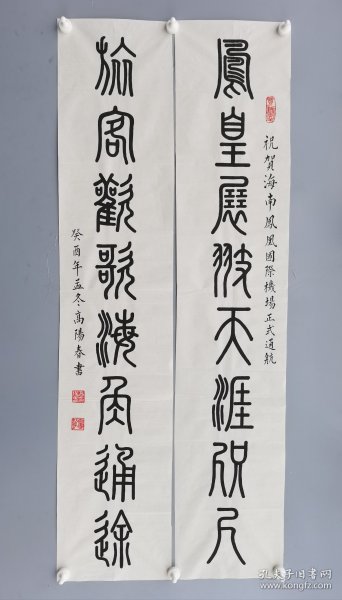 祝賀海南鳳凰國際機場正式通航
鳳皇展翅天涯咫尺
旅客歡歌海角通途
癸酉年孟冬高陽春書
孔夫子旧书网